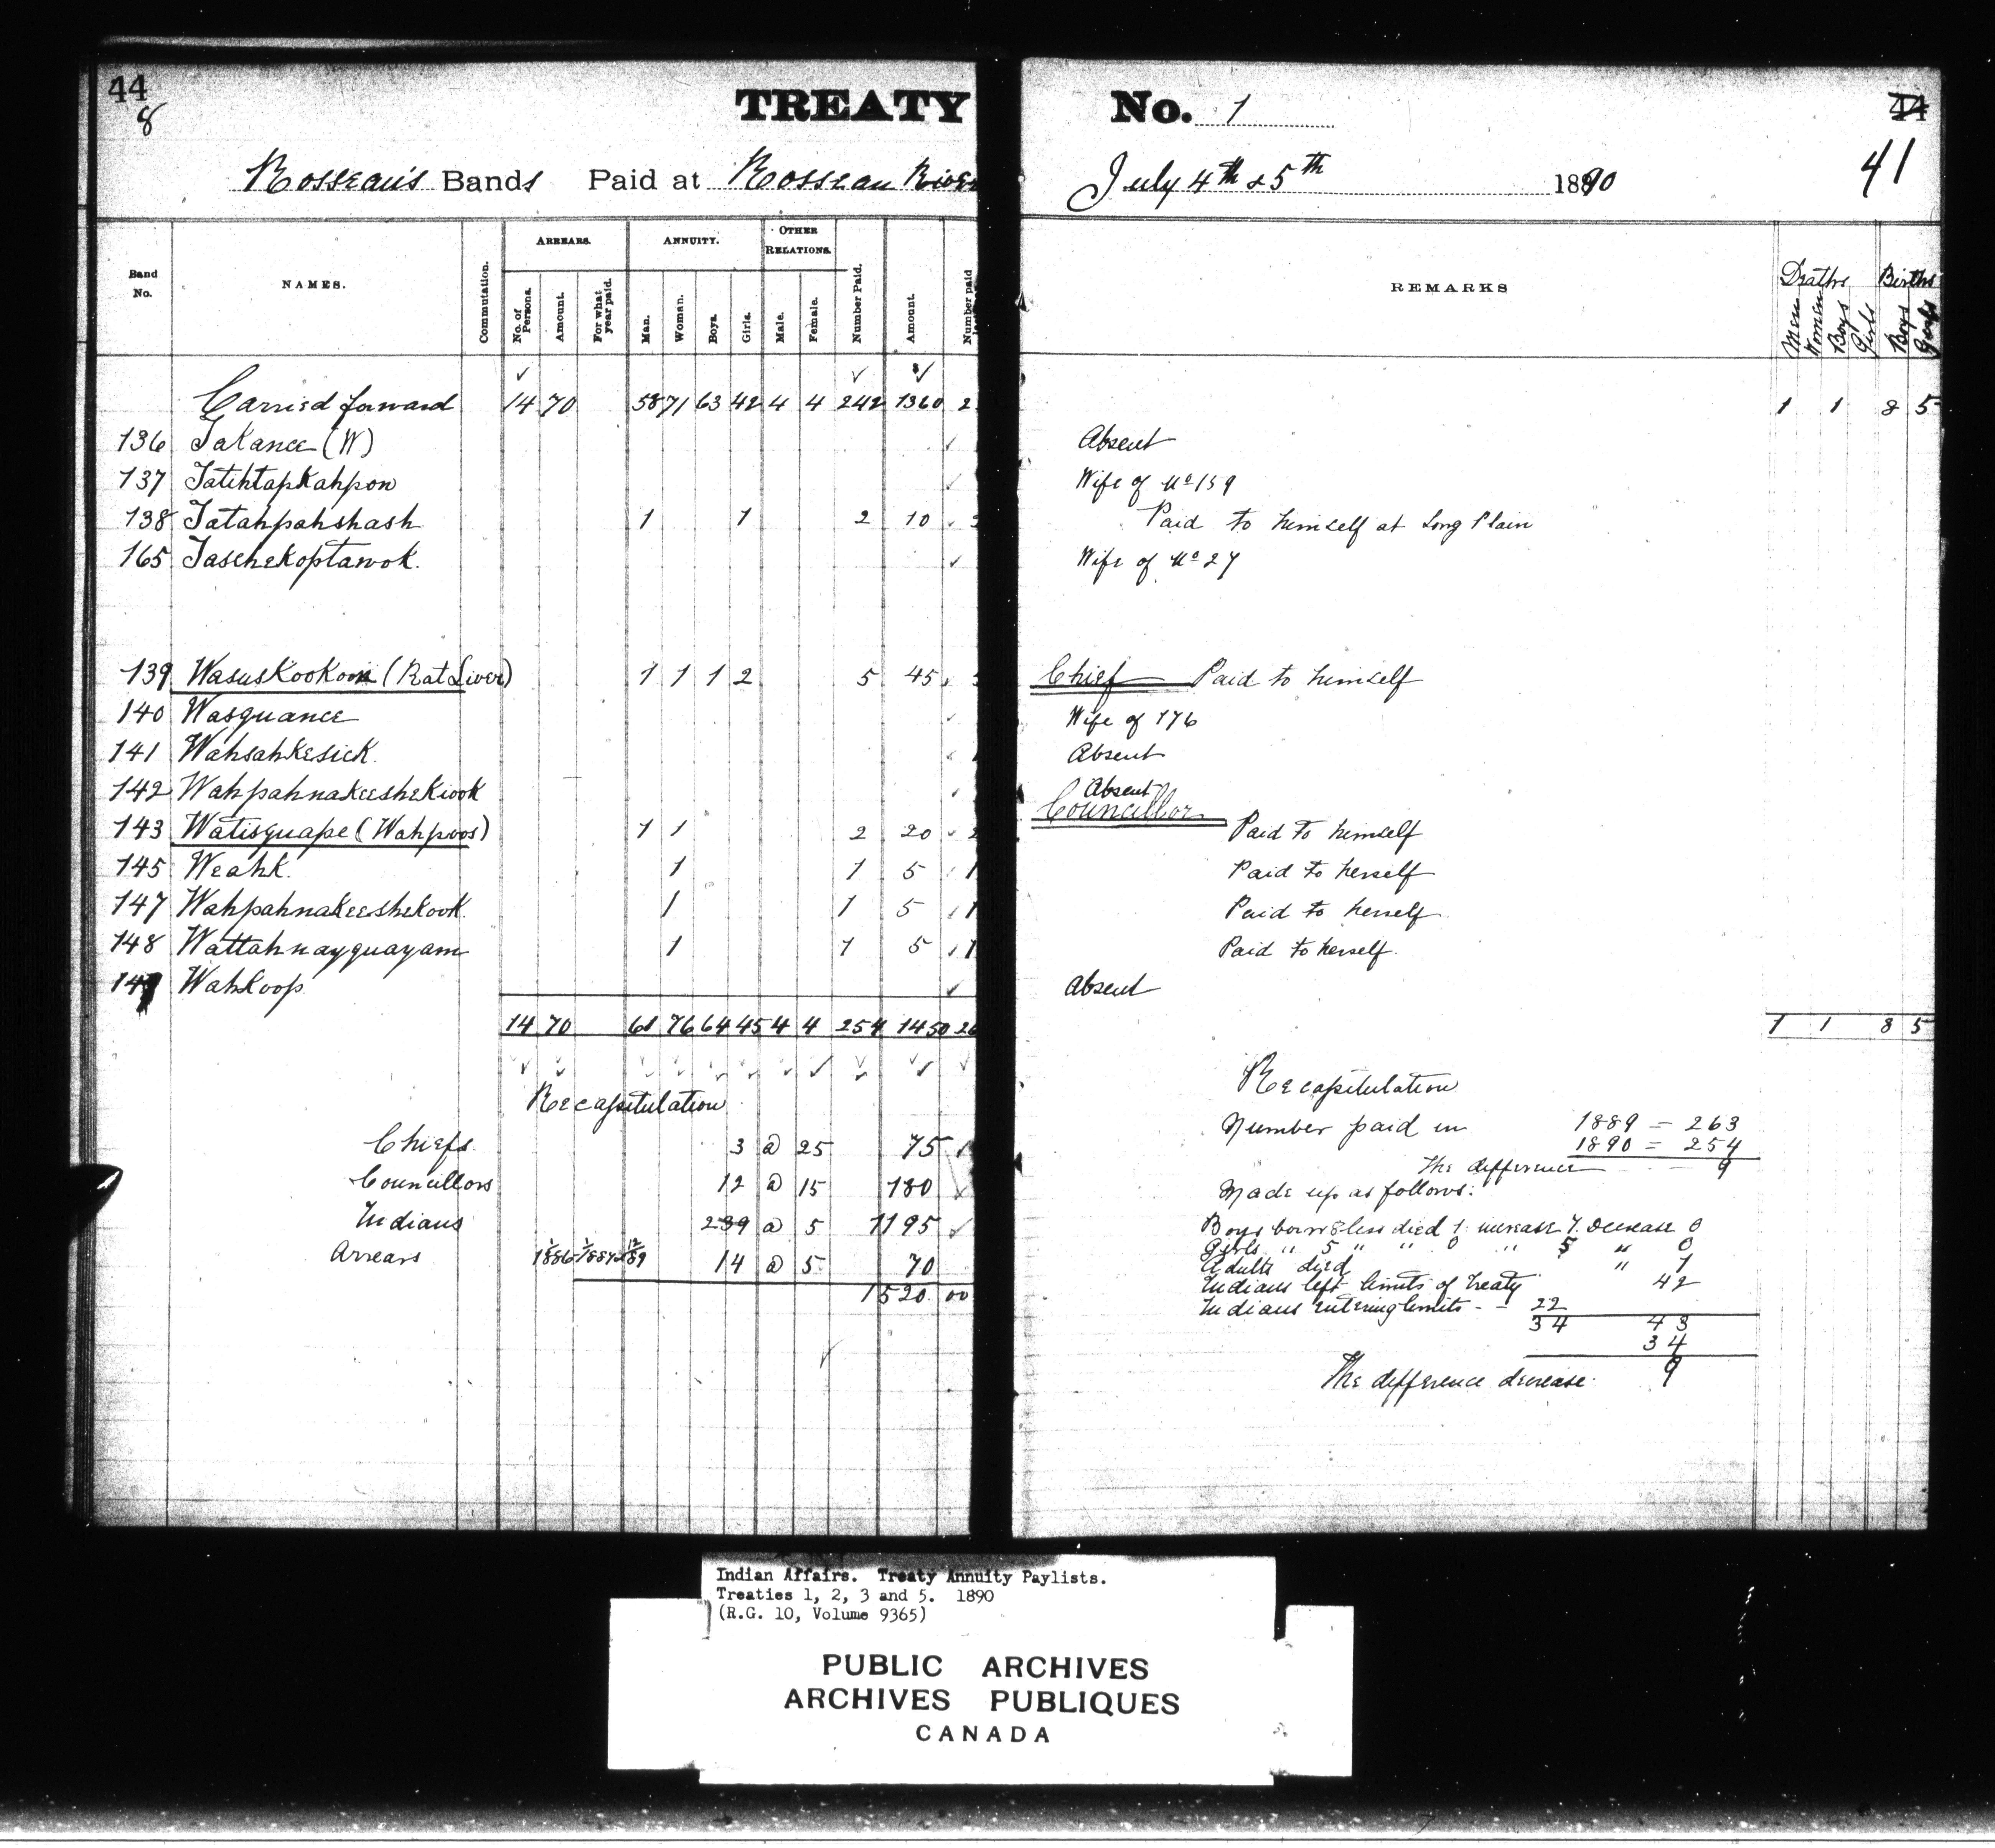 44
8
TREATY No. 1
44
41
Rosseau's Bands Paid at Rosseau River July 4th & 5th 1890
Band No. NAMES. Commutation. ARREARS. No. of Persons. Amount. For what year paid. ANNUITY. Man. Woman. Boys. Girls. OTHER RELATIONS. Male. Female. Number Paid. Amount. Number paid REMARKS Deaths Men Women Boys Girls Births Boys Girls
Carried forward 14 70 58 71 63 42 4 4 242 1360 2 1 1 8 5
136 Takance (W) Absent
137 Tatihtapkahpon Wife of No 159
138 Tatahpahshash 1 1 2 10 Paid to himself at Long Plain
165 Taschekoptawok. Wife of No 27
139 Wasuskookoon (Rat Liver) 1 1 1 2 5 45 Chief Paid to himself
140 Wasquance Wife of 176
141 Wahsahkesick. Absent
142 Wahpahnakeeshekiook Absent
143 Watisquape (Wahpoos) 1 1 2 20 2 Councillor Paid to himself
145 Weahk. 1 1 5 1 Paid to herself
147 Wahpahnakeeshekook 1 1 5 1 Paid to herself
148 Wattahnayquayam 1 1 5 1 Paid to herself.
149 Wahkoop Absent
14 70 61 76 64 45 4 4 254 1450 26 1 1 8 5
Recapitulation
Chiefs 3 @ 25 75
Councillors 12 @ 15 180
Indians 239 @ 5 1195
Arrears 1/1886 1/1887 12/89 14 @ 5 70
1520 00
Recapitulation
Number paid in 1889 = 263
1890 = 254
The difference 9
Made up as follows:
Boys born 8 less died 1 increase 7 Decrease 0
Girls " 5 " " 0 " 5 " 0
Adults died " 1
Indians left limits of Treaty 42
Indians entering limits - - 22
34 43
34
The difference decrease 9
Indian Affairs. Treaty Annuity Paylists.
Treaties 1, 2, 3 and 5. 1890
(R.G. 10, Volume 9365)
PUBLIC ARCHIVES
ARCHIVES PUBLIQUES
CANADA